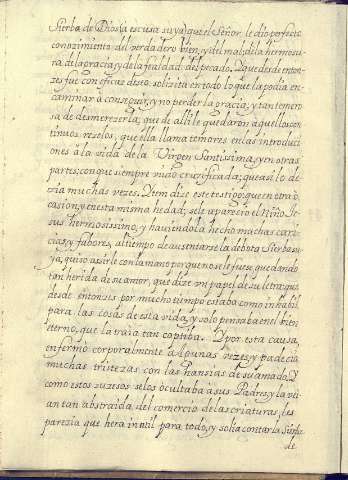 Sierba de Dios (a escusa suya) que el Señor, le dio perfecto
conozimiento del verdadero bien, y del mal; de la hermosu-
ra de la gracia, y de la fealdad del pecado. Y que desde enton-
zes fue con eficaz deseo, solizita en todo lo que la podia en-
caminar à conseguir, y no perder la gracia; y tan temero
sa de desmerezerla; que de alli le quedaron aquellos con
tinuos rezelos, que ella llama temores en las introduci
ones à la vida de la Virgen Santissima, y en otras
partes; con que siempre vido cruzificada; que asi lo de
zia muchas vezes. Ytem dize este testigo: que en otra o
casion, y en esta misma hedad; se le aparezio el Niño Je
sus hermosissimo; y haviendola hecho muchas cari-
cias, y fabores, al tiempo de ausentarse la debota Sierba su
ya, quiso asirle con la mano porque no se le fuese; quedando
tan herida de su amor, que dize en papel de su letra: que
desde entonzes por mucho tiempo estaba como inhabil
para las cosas de esta vida, y solo pensaba en el bien
eterno, que la traia tan captiba. Y por esta causa,
enfermò corporalmente algunas vezes, y padecia
muchas tristezas con las hansias de su amado. Y
como estos suzesos se los ocultaba à sus Padres, y la vei
an tan abstraida del comercio de las criaturas; les
parezia que hera inutil para todo; y solia contar la Sierba
de